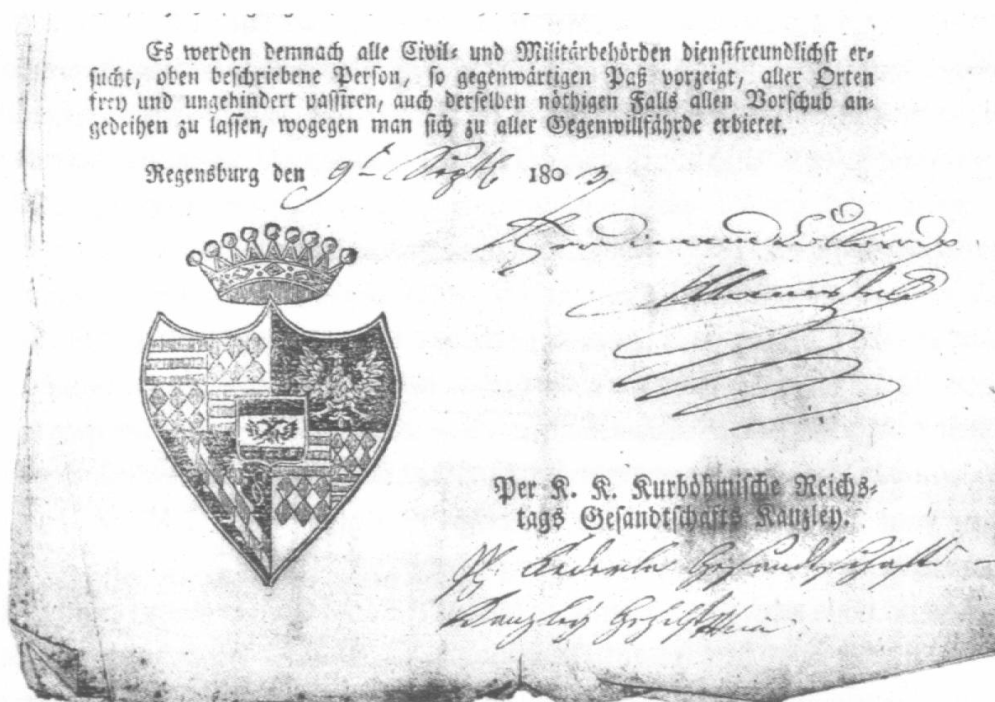 Es werden demnach alle Civil- und Militärbehörden dienstfreundlichst er-
sucht, oben beschriebene Person, so gegenwärtigen Paß vorzeigt, aller Orten
frey und ungehindert passiren, auch derselben nöthigen Falls allen Vorschub an-
gedeihen zu lassen, wogegen man sich zu aller Gegenwillfährde erbietet.
Regensburg den 9t Septb 1803
Ferdinand
Per K. K. Kurböhmische Reichs-
tags Gesandtschafts Kanzley.
Gesandtschafts-
Kanzley